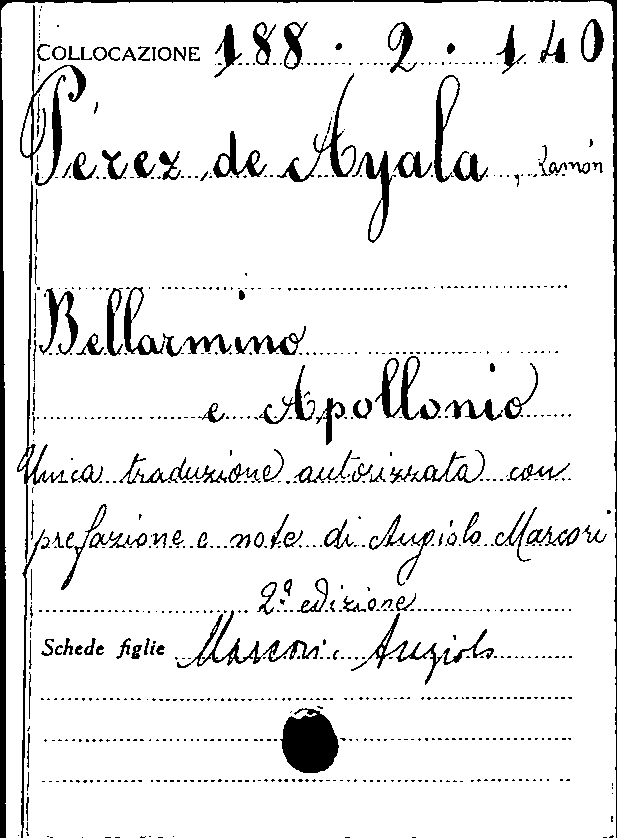 COLLOCAZIONE 188 . 2 . 140
Pérez de Ayala, Ramón
Bellarmino
e Apollonio
Unica traduzione autorizzata con
prefazione e note di Angiolo Marcori
2ª edizione
Schede figlie Marcori, Angiolo